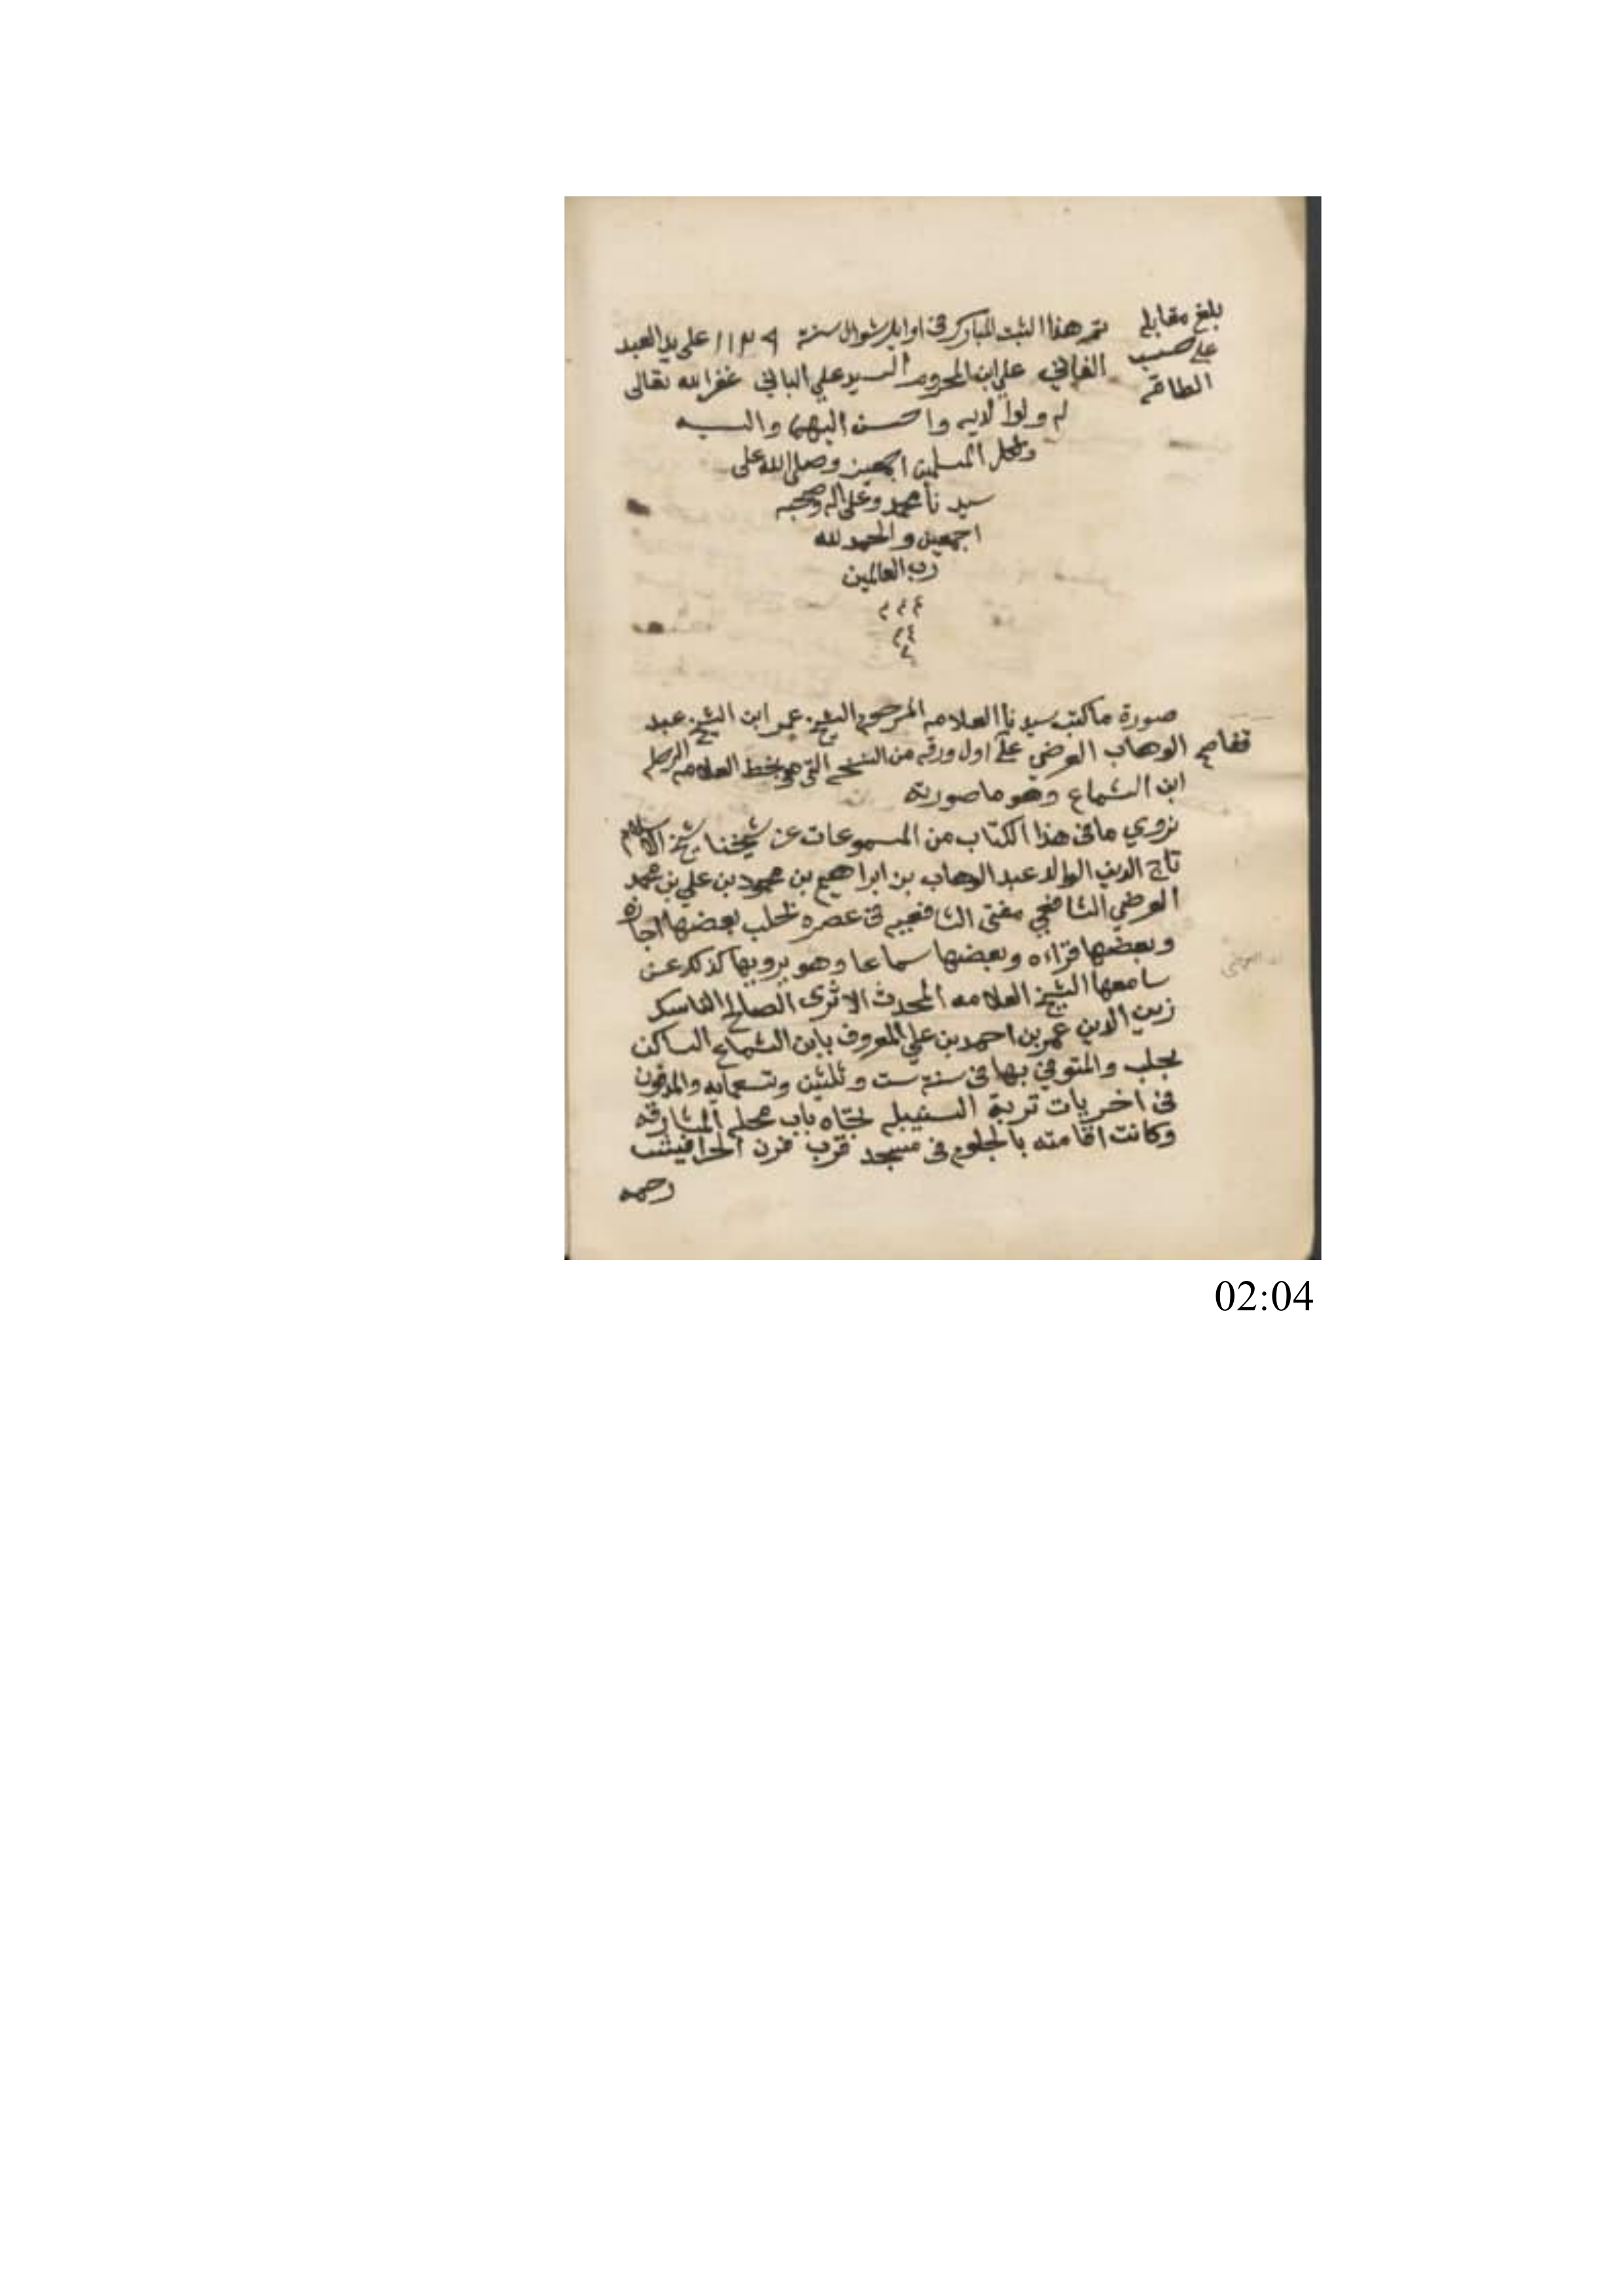 بلغ مقابلة
على حسب
الطاقة
تم هذا الثبت المبارك في اوايل شوال سنة ١١٣٩ على يد العبد
الفاني علي ابن المرحوم السيد علي الباني غفر الله تعالى
له ولوالديه واحسن اليهما واليه
ولكل المسلمين اجمعين وصلى الله على
سيدنا محمد وعلى اله وصحبه
اجمعين والحمد لله
رب العالمين
م م م
م م
م
صورة ما كتب سيدنا العلامه المرحوم الشيخ عمر ابن الشيخ عبد
الوهاب العرضي على اول ورقه من النسخه التي هي بخط العلامه
ابن الشماع وهو ما صورته
نروي ما في هذا الكتاب من المسموعات عن شيخنا شيخ الاسلام
تاج الدين الوالد عبد الوهاب بن ابراهيم بن محمود بن علي بن محمد
العرضي الشافعي مفتي الشافعيه في عصره بحلب بعضها اجازه
وبعضها قراءه وبعضها سماعا وهو يرويها كذلك عن
سامعها الشيخ العلامه المحدث الاثرى الصالح الناسك
زين الدين عمر بن احمد بن علي المعروف بابن الشماع الساكن
بحلب والمتوفي بها في سنة ست وثلثين وتسعمايه والمدفون
في اخريات تربة السنبيله تجاه باب محله المشارقه
وكانت اقامته بالجلوم في مسجد قرب فرن
رحمه
02:04